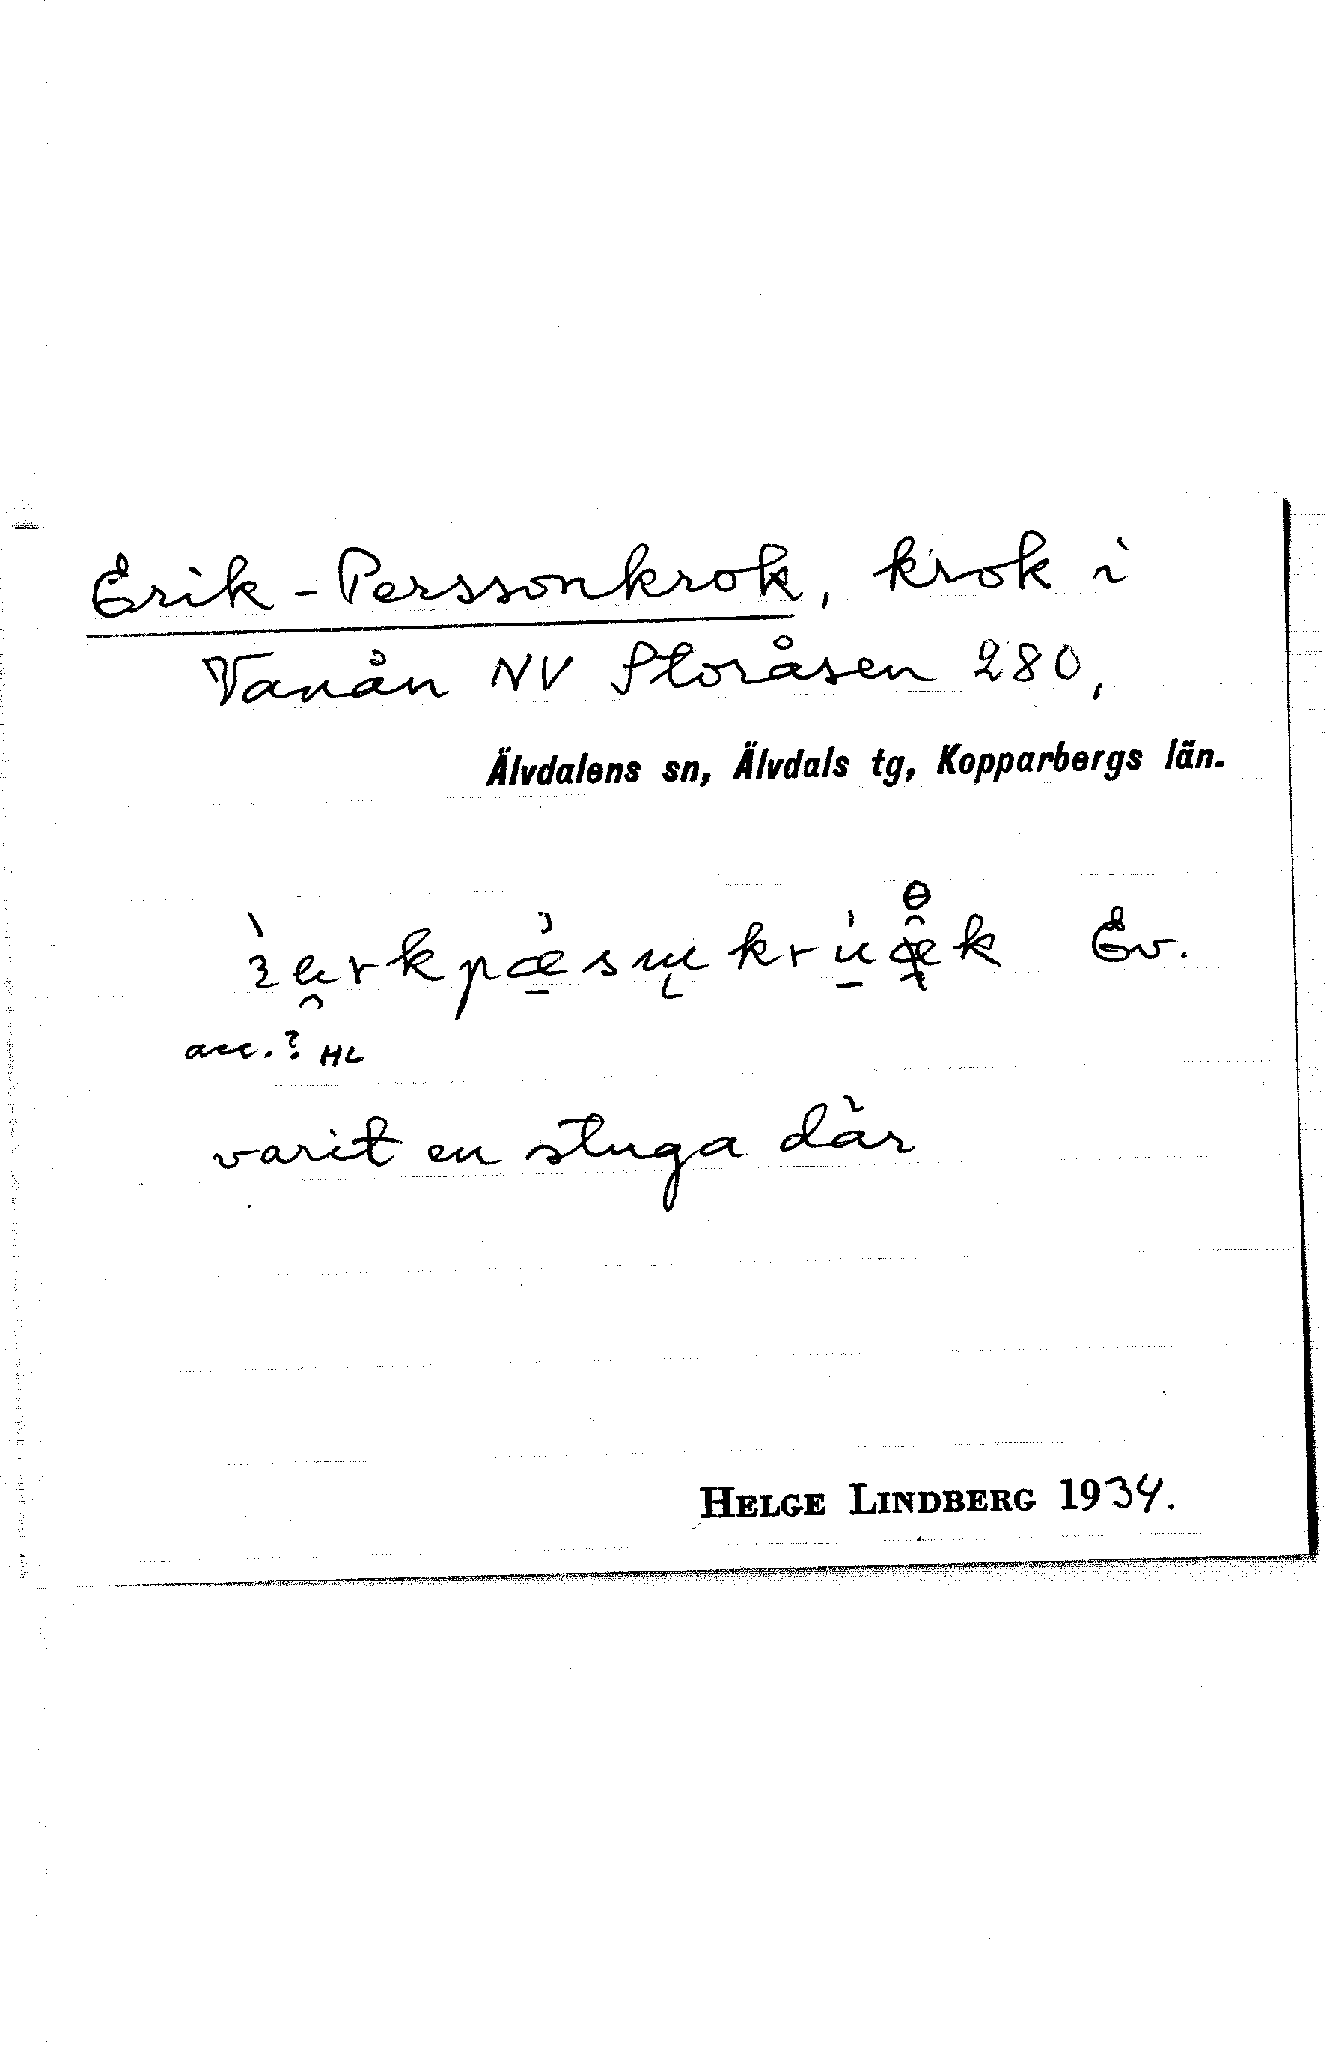 Erik-Perssonkrok, krok i
Vanån NV Storåsen 280,
Älvdalens sn, Älvdals tg, Kopparbergs län.
Ev.
acc.? HL
varit en stuga där
HELGE LINDBERG 1934.